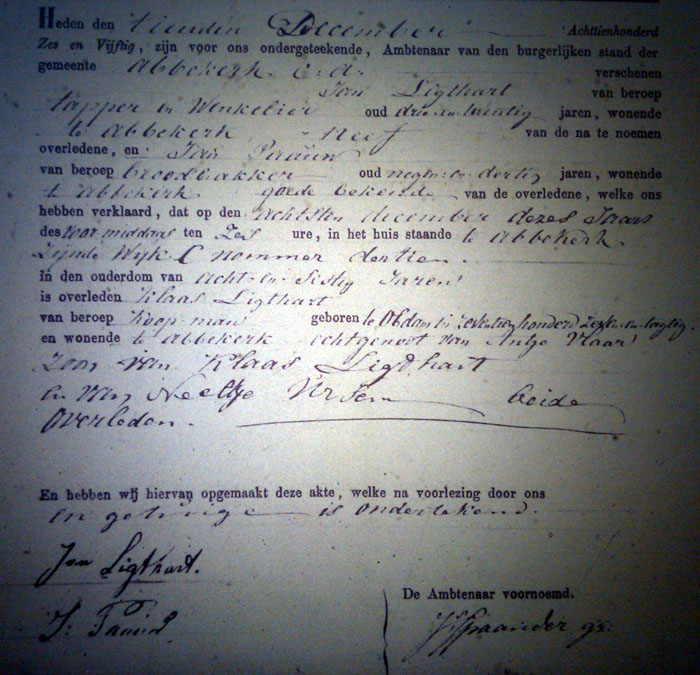 Heden den tienden December Achttienhonderd
Zes en Vijftig, zijn voor ons ondergeteekende, Ambtenaar van den burgerlijken stand der
gemeente Abbekerk c.a. verschenen
Jan Ligthart van beroep
tapper en Winkelier oud drie en twintig jaren, wonende
te Abbekerk, Neef van de na te noemen
overledene, en Jan
van beroep broodbakker oud negen en dertig jaren, wonende
te Abbekerk goede bekende van de overledene, welke ons
hebben verklaard, dat op den achtsten december dezes Jaars
des voor middags ten Zes ure, in het huis staande te Abbekerk
Zijnde Wyk C nommer dertien.
in den ouderdom van acht en Sestig Jaren
is overleden Klaas Ligthart
van beroep Koopman geboren te Obdam in zeventienhonderd en
en wonende te Abbekerk echtgenoot van Antje
Zoon van Klaas Ligthart
en van Neeltje Ursem beide
Overleden.
En hebben wij hiervan opgemaakt deze akte, welke na voorlezing door ons
en getuige is ondertekend.
Jan Ligthart.
De Ambtenaar voornoemd.
J.
Spaander gz.